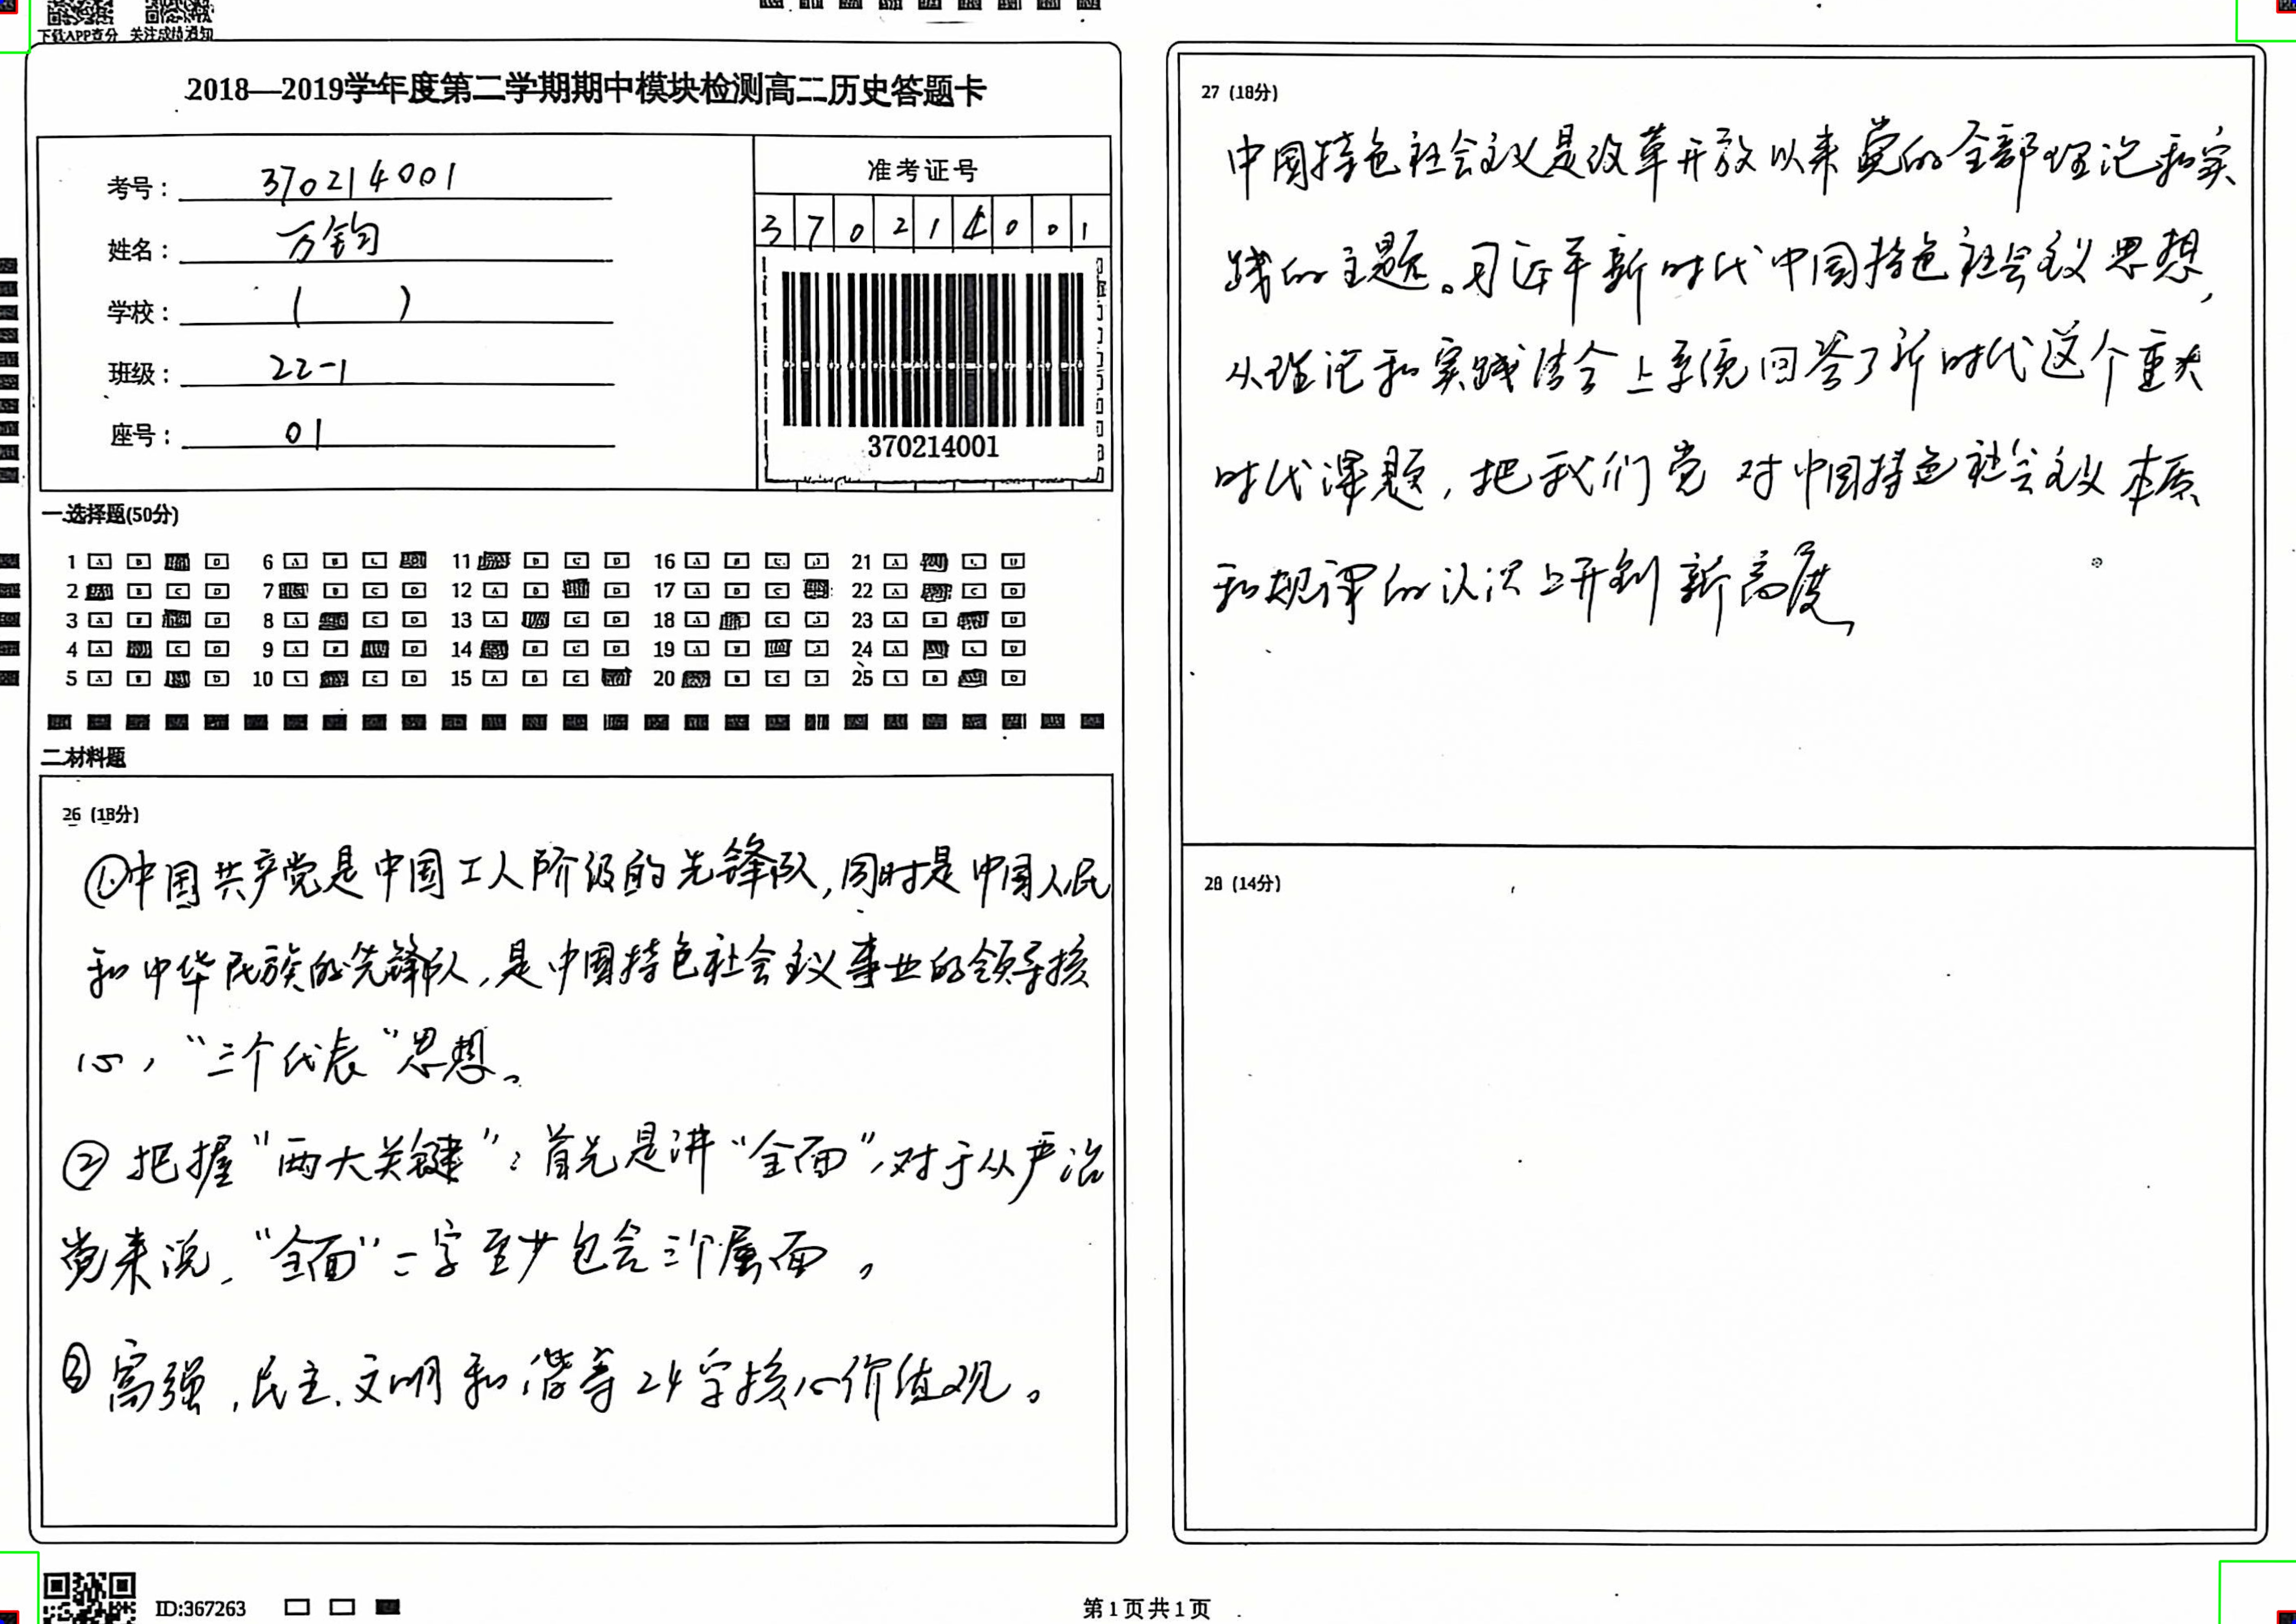 下载APP查分 关注成绩通知
2018—2019学年度第二学期期中模块检测高二历史答题卡
考号： 370214001
姓名： 万钧
学校： ( )
班级： 22-1
座号： 01
准考证号
3 7 0 2 1 4 0 0 1
370214001
一.选择题(50分)
1 A B D 6 A B C 11 B C D 16 A B C D 21 A C D
2 B C D 7 B C D 12 A B D 17 A B C 22 A C D
3 A B D 8 A C D 13 A C D 18 A C D 23 A B D
4 A C D 9 A B D 14 B C D 19 A B D 24 A C D
5 A B D 10 A C D 15 A B C 20 B C D 25 A B D
二.材料题
26 (18分)
①中国共产党是中国工人阶级的先锋队,同时是中国人民
和中华民族的先锋队,是中国特色社会主义事业的领导核
心,“三个代表”思想。
②把握“两大关键”：首先是讲“全面”,对于从严治
党来说,“全面”二字至少包含三个层面。
③富强,民主.文明和谐等24字核心价值观。
27 (18分)
中国特色社会主义是改革开放以来党的全部理论和实
践的主题。习近平新时代中国特色社会主义思想,
从理论和实践结合上系统回答了新时代这个重大
时代课题,把我们党对中国特色社会主义本质
和规律的认识上升到新高度,
28 (14分)
ID:367263
第1页共1页